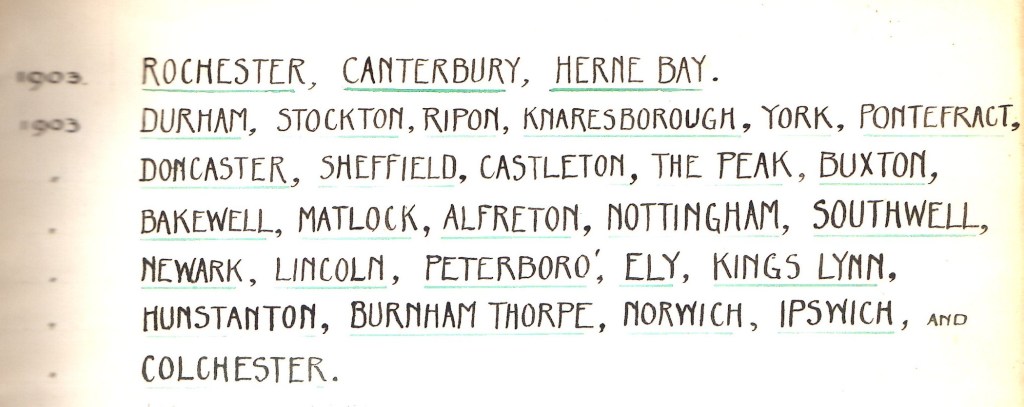 1903. ROCHESTER, CANTERBURY, HERNE BAY.
1903 DURHAM, STOCKTON, RIPON, KNARESBOROUGH, YORK, PONTEFRACT,
. DONCASTER, SHEFFIELD, CASTLETON, THE PEAK, BUXTON,
. BAKEWELL, MATLOCK, ALFRETON, NOTTINGHAM, SOUTHWELL,
. NEWARK, LINCOLN, PETERBORO', ELY, KINGS LYNN,
. HUNSTANTON, BURNHAM THORPE, NORWICH, IPSWICH, AND
. COLCHESTER.